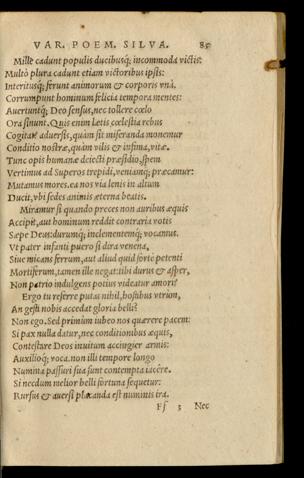 VAR. POEM. SILVA. 85
Mille cadunt populis ducibusq; incommoda victis:
Multò plura cadunt etiam victoribus ipsis:
Interitusq; ferunt animorum & corporis vnà.
Corrumpunt hominum felicia tempora mentes:
Auertuntq; Deo sensus, nec tollere cœlo
Ora sinunt. Quis enim lætis cœlestia rebus
Cogitat? aduersis, quàm sit miseranda monemur
Conditio nostræ, quàm vilis & infima, vitæ.
Tunc opis humanæ deiecti præsidio, spem
Vertimus ad Superos trepidi, veniamq; præcamur:
Mutamus mores. ea nos via lenis in altum
Ducit, vbi sedes animis æterna beatis.
Miramur si quando preces non auribus æquis
Accipit, aut hominum reddit contraria votis
Sæpe Deus: durumq; inclementemq; vocamus.
Vt pater infanti puero si dira venena,
Siue micans ferrum, aut aliud quid fortè petenti
Mortiferum, tamen ille negat: tibi durus & asper,
Non patrio indulgens potius videatur amori?
Ergo tu referre putas nihil, hostibus vtrùm,
An gesti nobis accedat gloria belli?
Non ego. Sed primùm iubeo nos quærere pacem:
Si pax nulla datur, nec conditionibus æquis,
Contestare Deos inuitum accingier armis:
Auxilioq; voca. non illi tempore longo
Numina passuri sua sunt contempta iacêre.
Si necdum melior belli fortuna sequetur:
Rursus & auersi placanda est numinis ira.
Ff 3 Nec